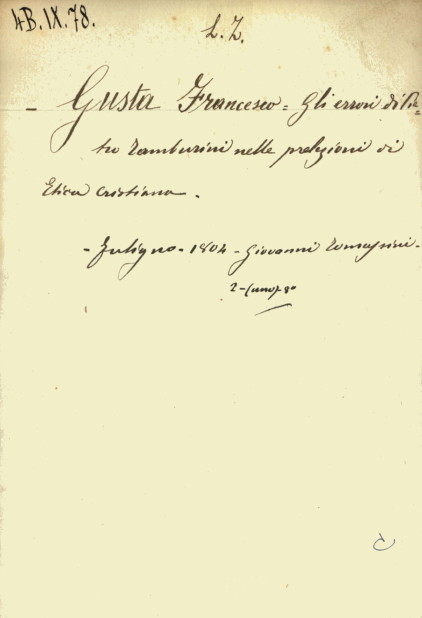 4B.IX.78.
L. Z.
- Gusta Francesco = Gli errori di Pie-
tro Tamburini nelle prelezioni di
Etica cristiana.
- Fuligno - 1804 - Giovanni Tomassini -
2 - (uno) - 8°
C